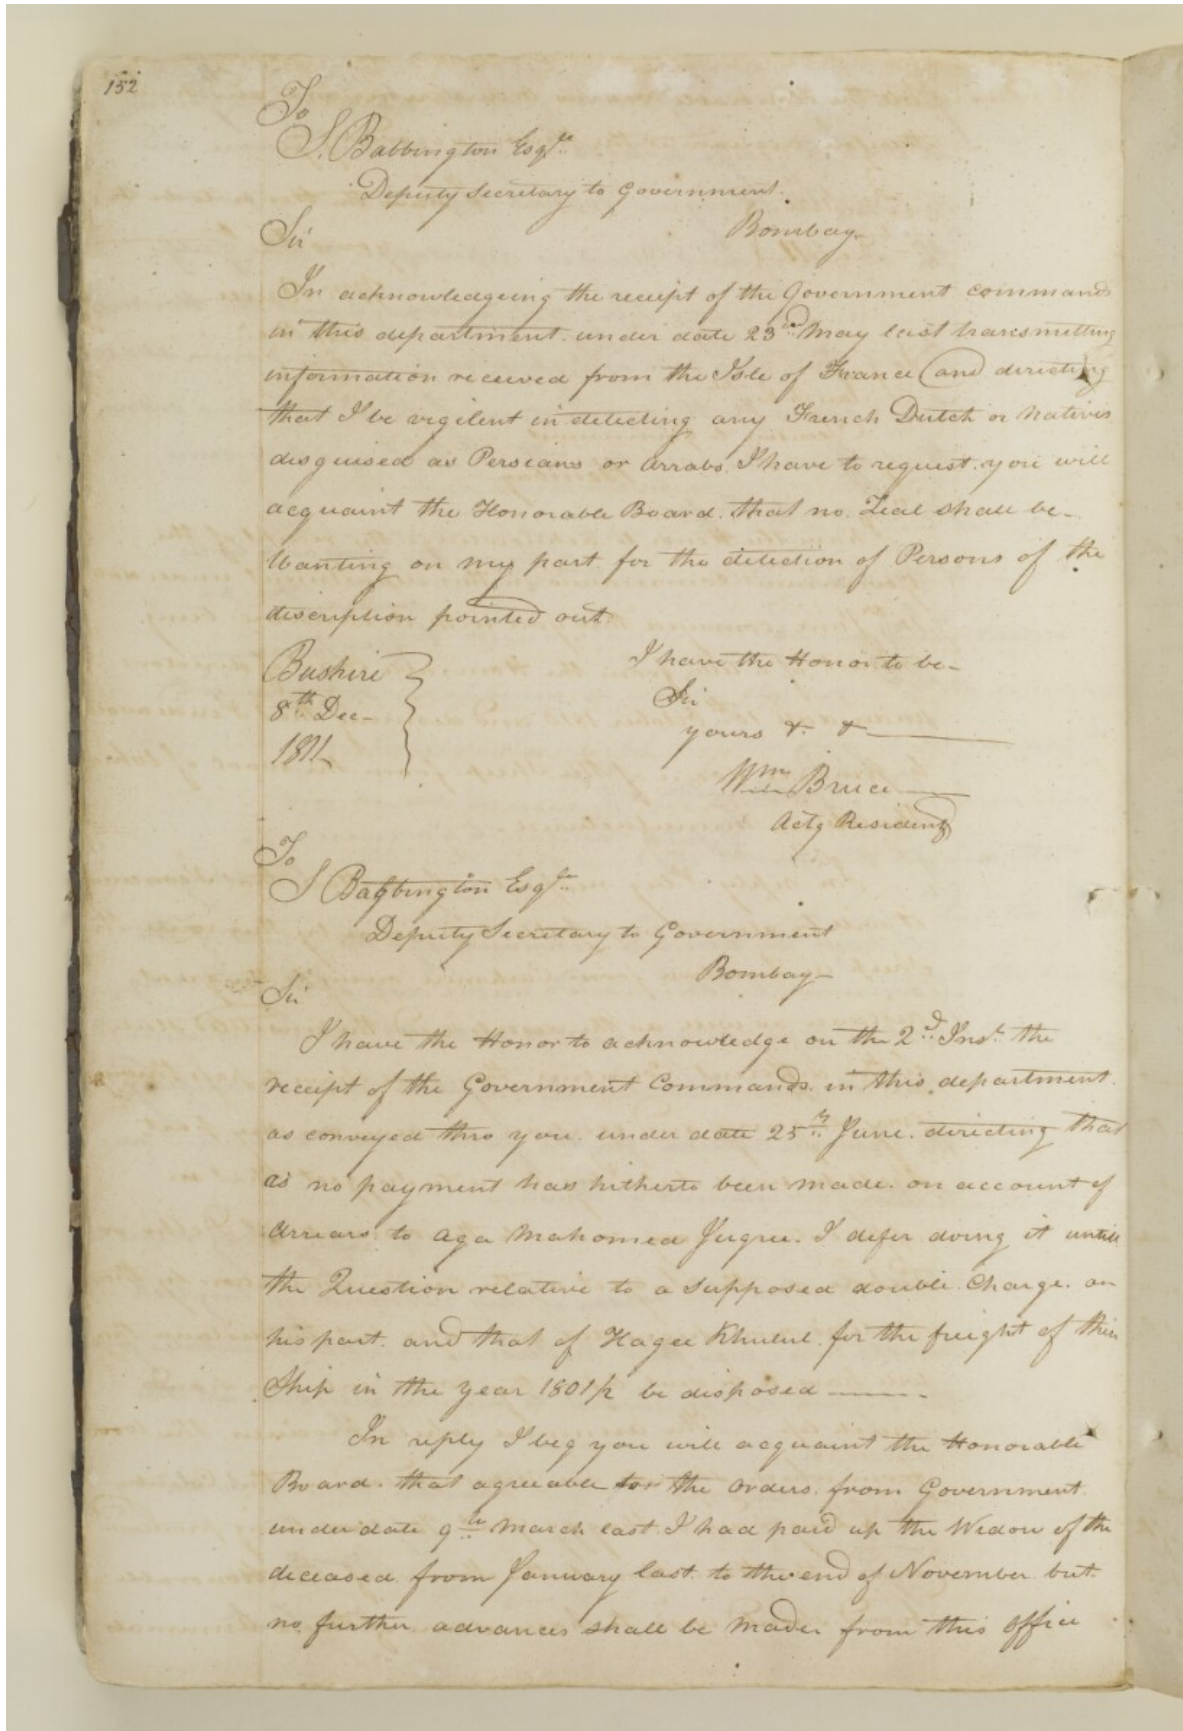 152
To
S. Babbington Esqre
Deputy Secretary to Government.
Bombay
Sir
In acknowledgeing the receipt of the Government commands
in this department. under date 23rd May last transmitting
information received from the Isle of France and directing
that I be vigilent in detecting any French Dutch or natives
disguised as Persians or Arrabs. I have to request. you will
acquaint the Honorable Board. that no. Zeal shall be
Wanting on my part for the detection of Persons of the
discription pointed out.
Bushire
8th Dec
1811
I have the Honor to be
Sir
yours & &
Wm Bruce
Actg Resident
To
S Babbington Esqre
Deputy Secretary to Government
Bombay
Sir
I have the Honor to acknowledge on the 2d Inst. the
receipt of the Government Commands. in this department.
as conveyed thro you. under date 25th June. directing that
as no payment has hitherto been made. on account of
Arrears. to Aga Mahomed I defer doing it untill
the Question relative to a Supposed double. Charge. on
his part. and that of Hagee Khulul. for the freight of their
Ship in the year 1801/2 be disposed
In reply I beg you will acquaint the Honorable
Board. that agreeable to the Orders. from Government.
under date 9th March last. I had paid up the Widow of the
deceased. from January last. to the end of November but.
no. further. advances shall be made from this office